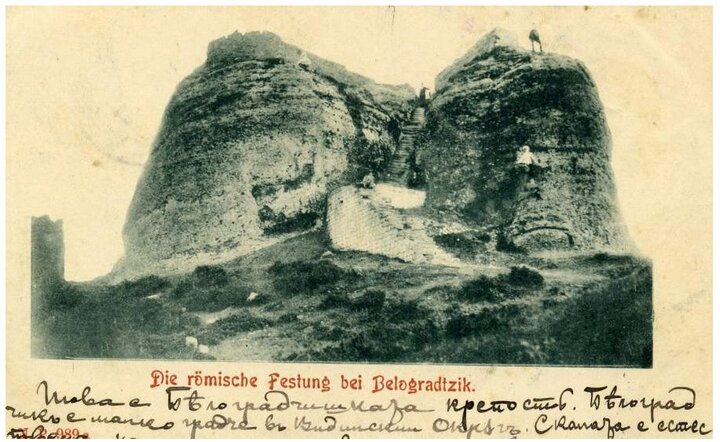 Die römische Festung bei Belogradtzik.
Това е Бѣлоградчишката крепость. Бѣлоград
чикъ е малко градче въ Видинския Окрѫгъ. Скалата е естес
989